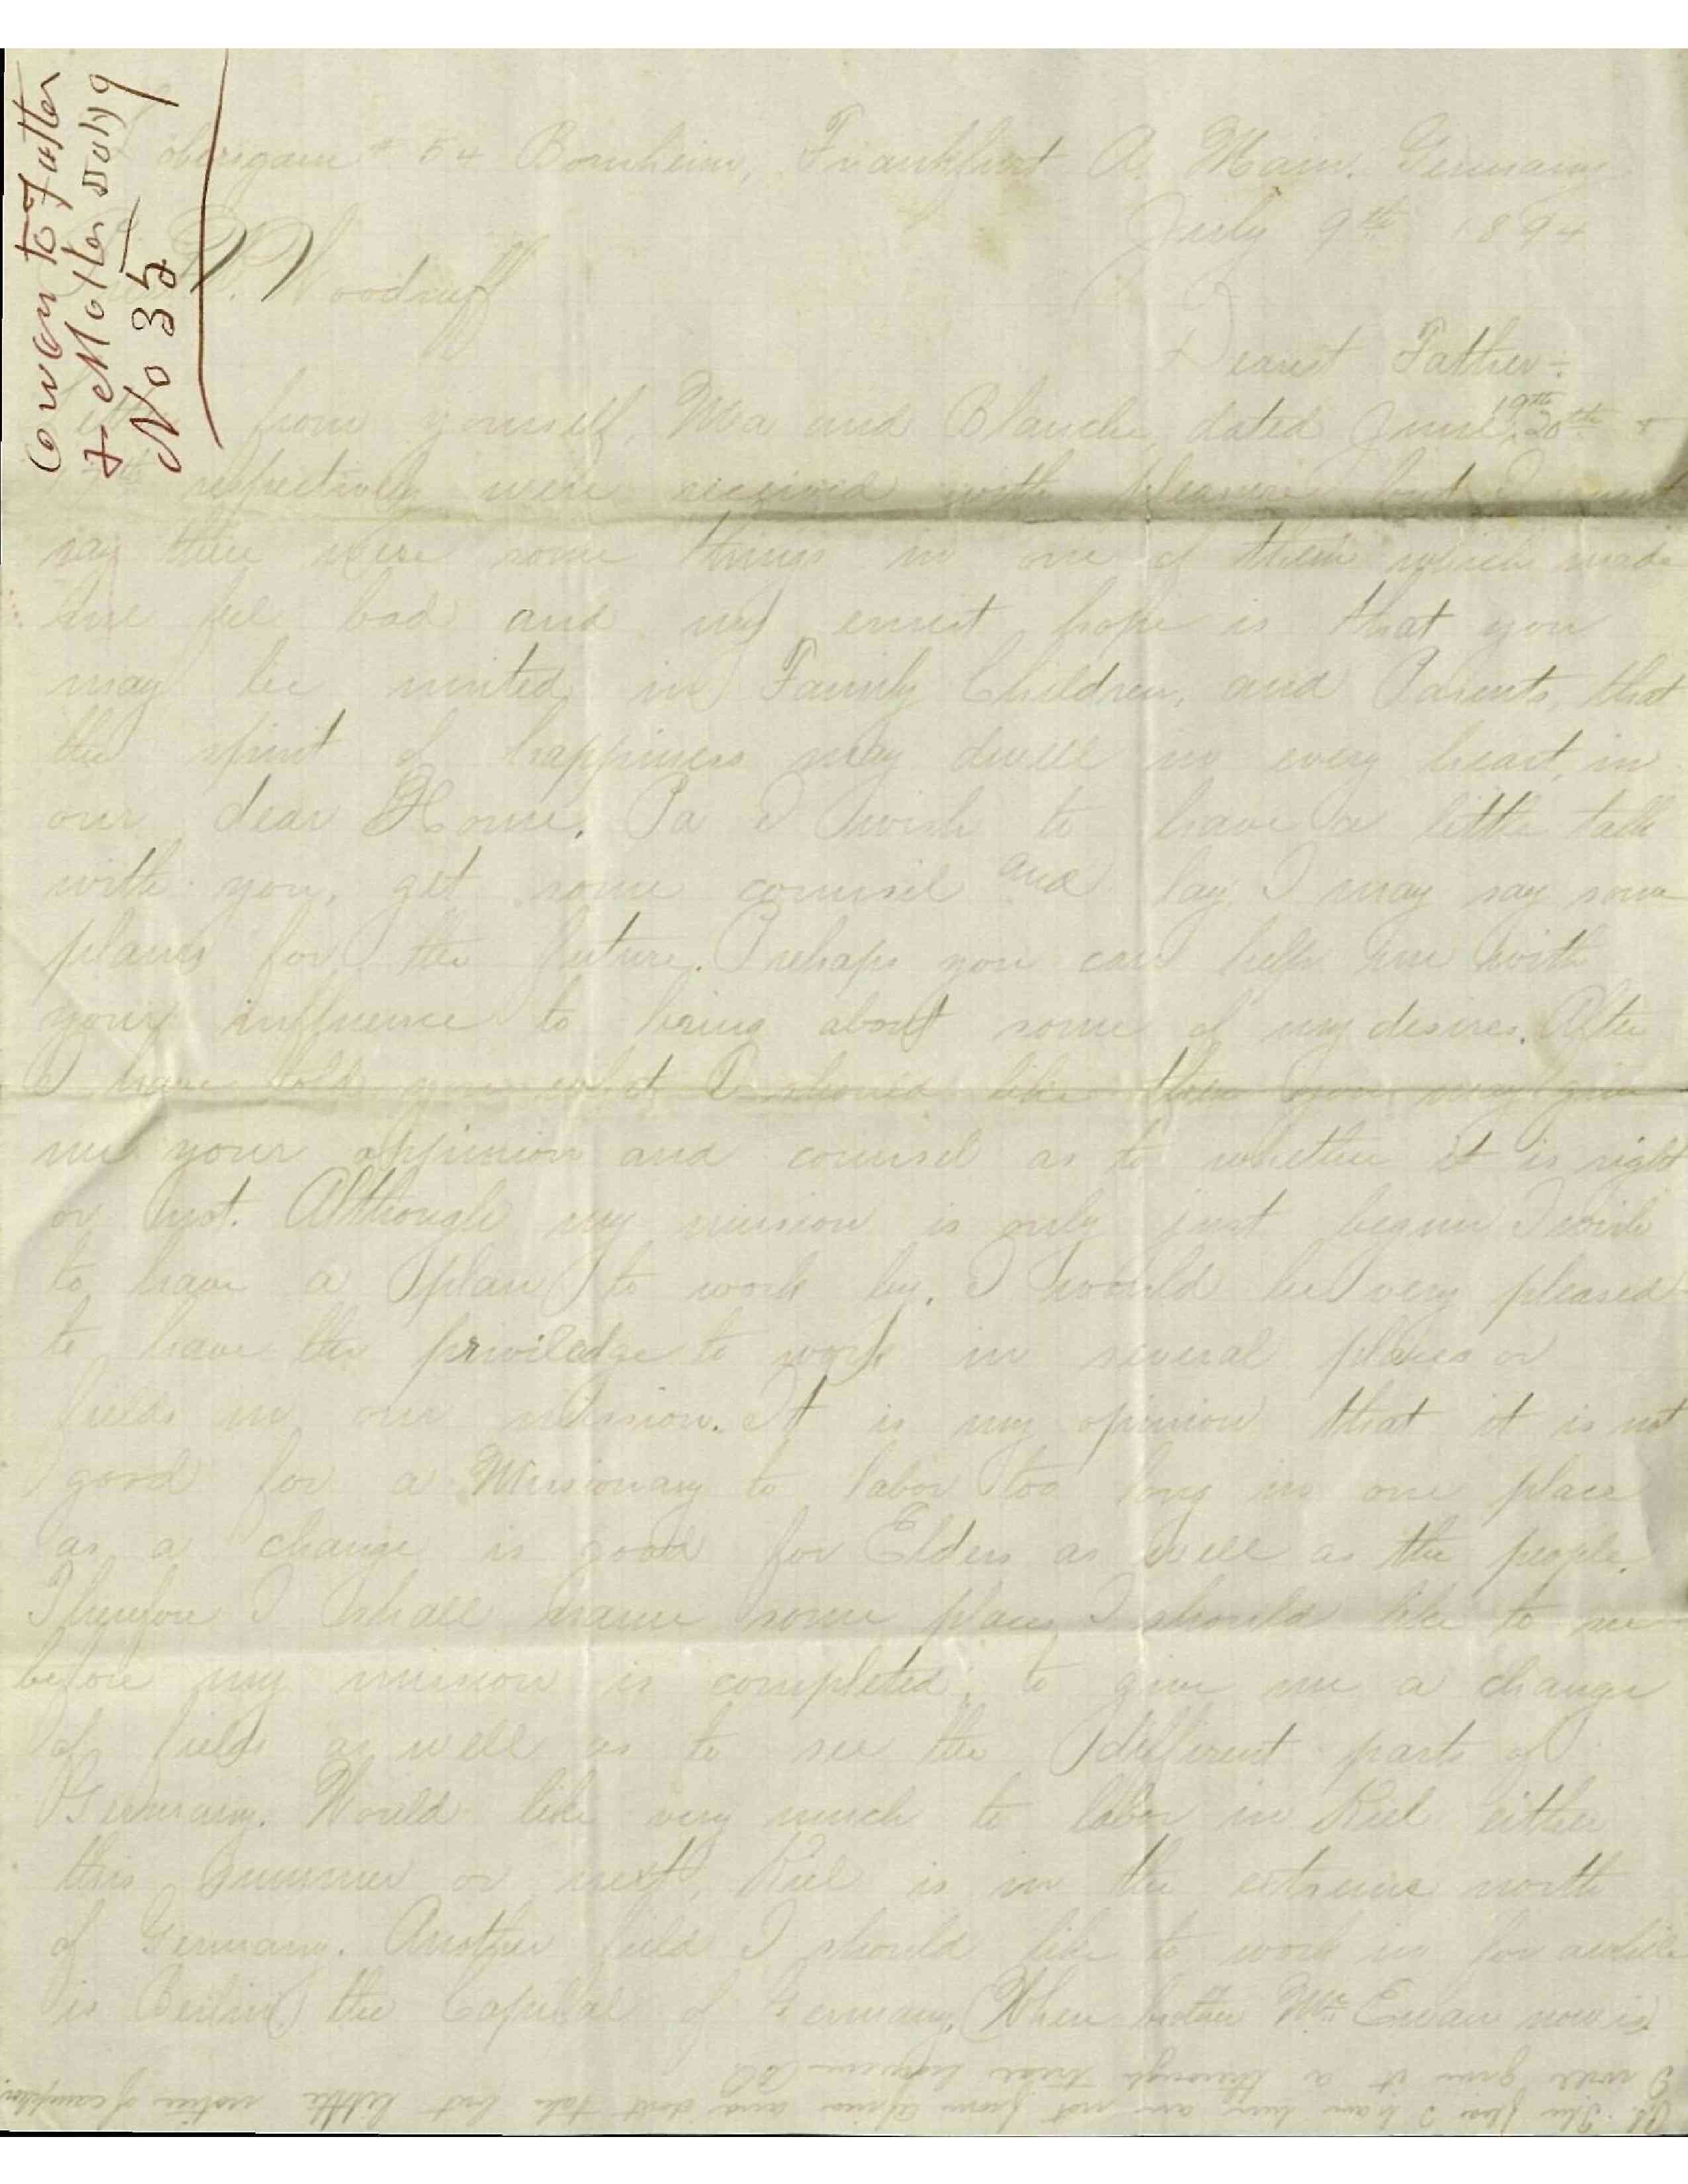 Owen to Father
& Mother July 9
No 35
# 54 Bornheim, Frankfurt A. Main. Germany
July 9th 1894
W. Woodruff
Dearest Father:-
from yourself, Ma and Blanche, dated June 19th 20th &
respectively were received with pleasure but I must
say there were some things in one of them which made
me feel bad and my ernest hope is that you
may be united in Family Children, and Parents, that
the spirit of happiness may dwell in every heart, in
our dear Home. Pa I wish to have a little talk
with you, get some counsil and lay I may say some
plans for the future. Prehaps you can help me with
your influence to bring about some of my desires. After
I have told you what I should like then you may give
me your oppinion and counsel as to whether it is right
or not. Although my mission is only just begun I wish
to have a plan to work by. I would be very pleased
to have the priviledge to work in several places or
fields in our mission. It is my opinion that it is not
good for a Missionary to labor too long in one place
as a change is good for Elders as well as the people.
Therefore I shall name some places I should like to see
before my mission is completed; to give me a change
of field as well as to see the different parts of
Germany. Would like very much to labor in Kiel either
this summer or next, Kiel is in the extreme north
of Germany. Another field I should like to work in for awhile
is Berlin the Capital of Germany. (Where brother McEwan now is)
P.S. The fleas I have here are not from Africa and dont take but little notice of camphor.
I will give it a thorough trial however